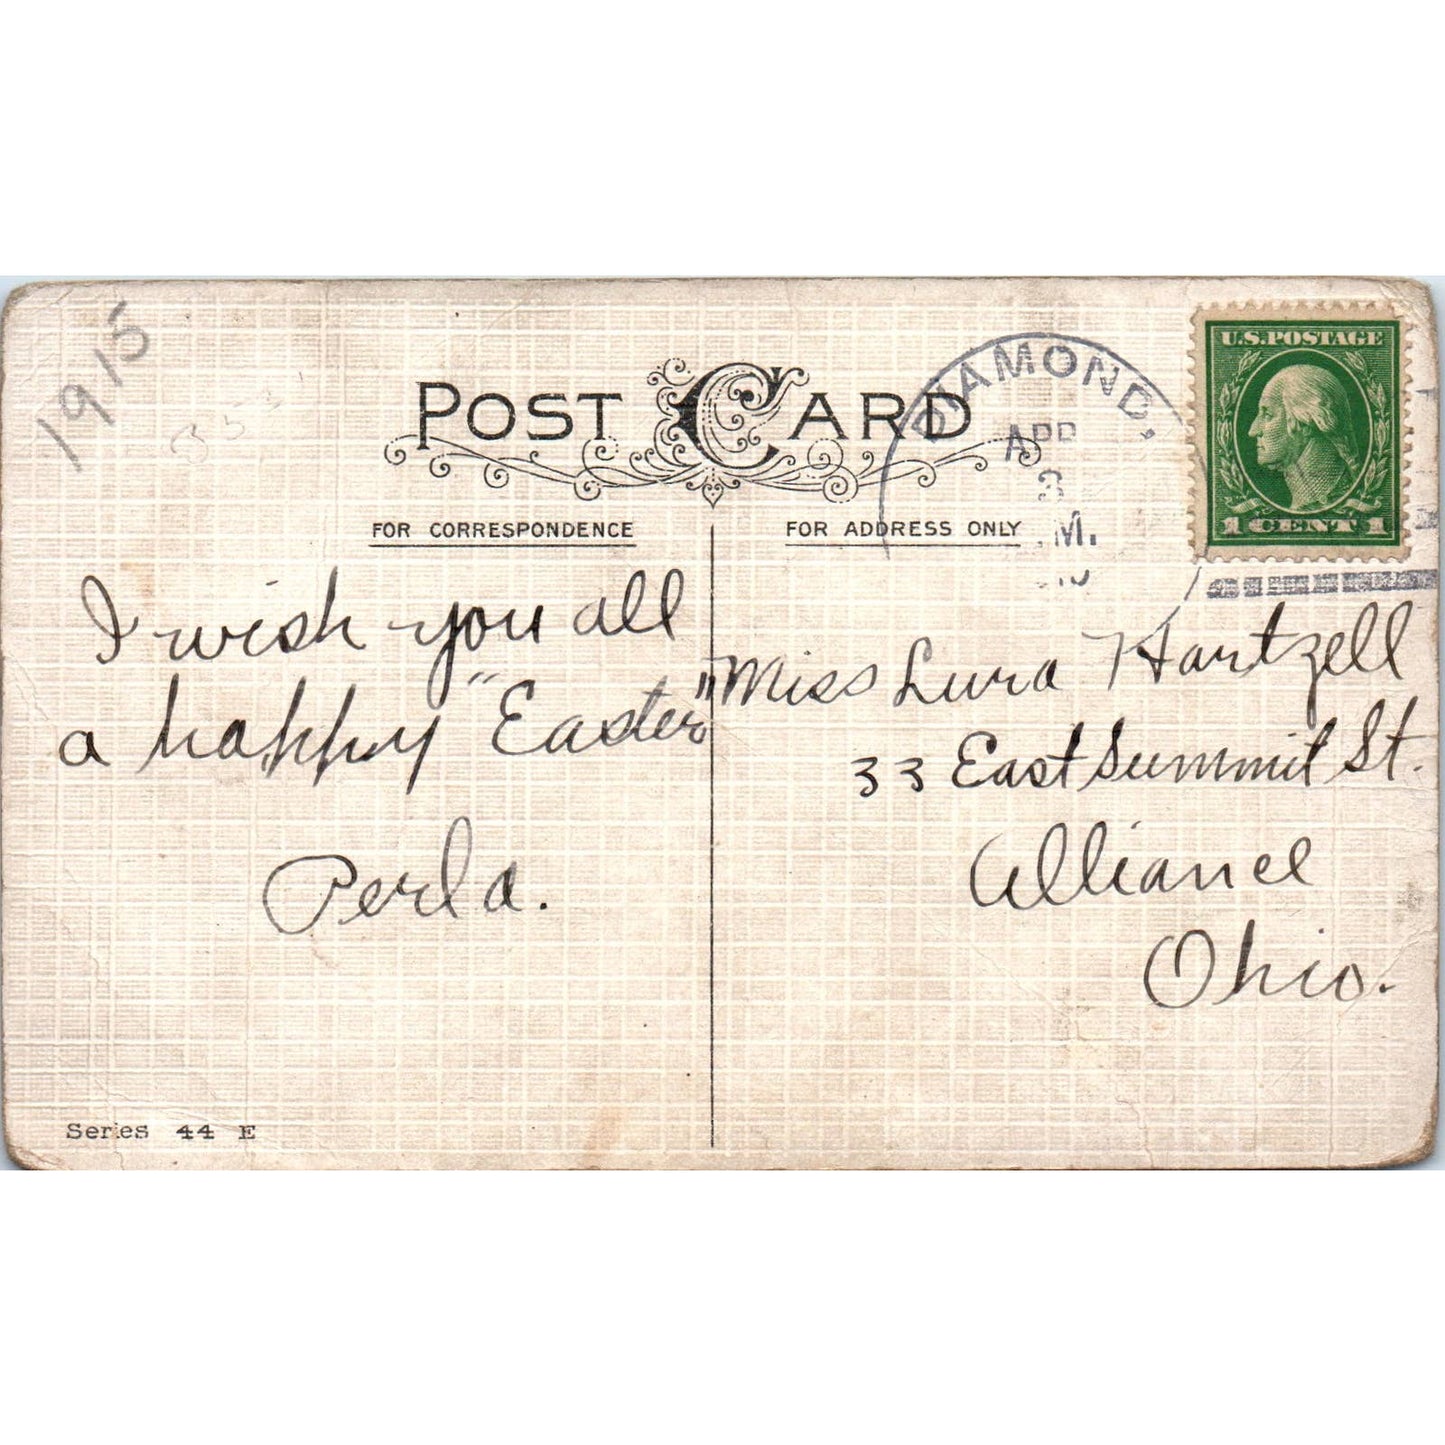 1915
33
POST CARD
DIAMOND,
APR
3
.M.
U.S. POSTAGE
1 CENT 1
FOR CORRESPONDENCE
FOR ADDRESS ONLY
I wish you all
a happy "Easter"
Perla.
Miss Lura Hartzell
33 East Summit St.
Alliance
Ohio.
Series 44 E